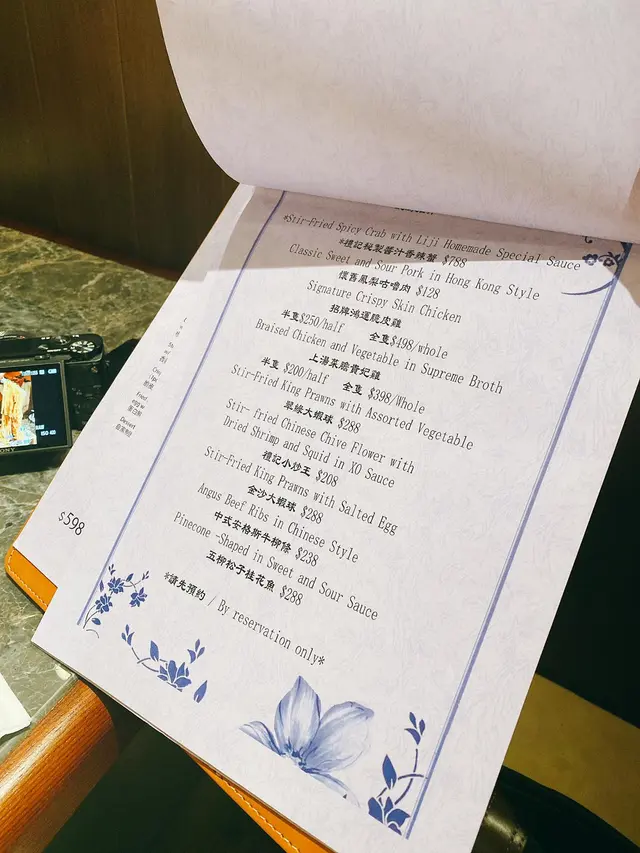 *Stir-Fried Spicy Crab with Liji Homemade Special Sauce
*禮記秘製醬汁香辣蟹 $788
Classic Sweet and Sour Pork in Hong Kong Style
懷舊鳳梨咕嚕肉 $128
Signature Crispy Skin Chicken
招牌鴻運脆皮雞
半隻$250/half 全隻$498/whole
Braised Chicken and Vegetable in Supreme Broth
上湯菜膽貴妃雞
半隻 $200/half 全隻 $398/Whole
Stir-Fried King Prawns with Assorted Vegetable
翠綠大蝦球 $288
Stir- fried Chinese Chive Flower with
Dried Shrimp and Squid in XO Sauce
禮記小炒王 $208
Stir-Fried King Prawns with Salted Egg
金沙大蝦球 $288
Angus Beef Ribs in Chinese Style
中式安格斯牛柳條 $238
Pinecone -Shaped in Sweet and Sour Sauce
五柳松子桂花魚 $288
*請先預約 / By reservation only*
$598
Dessert
SONY